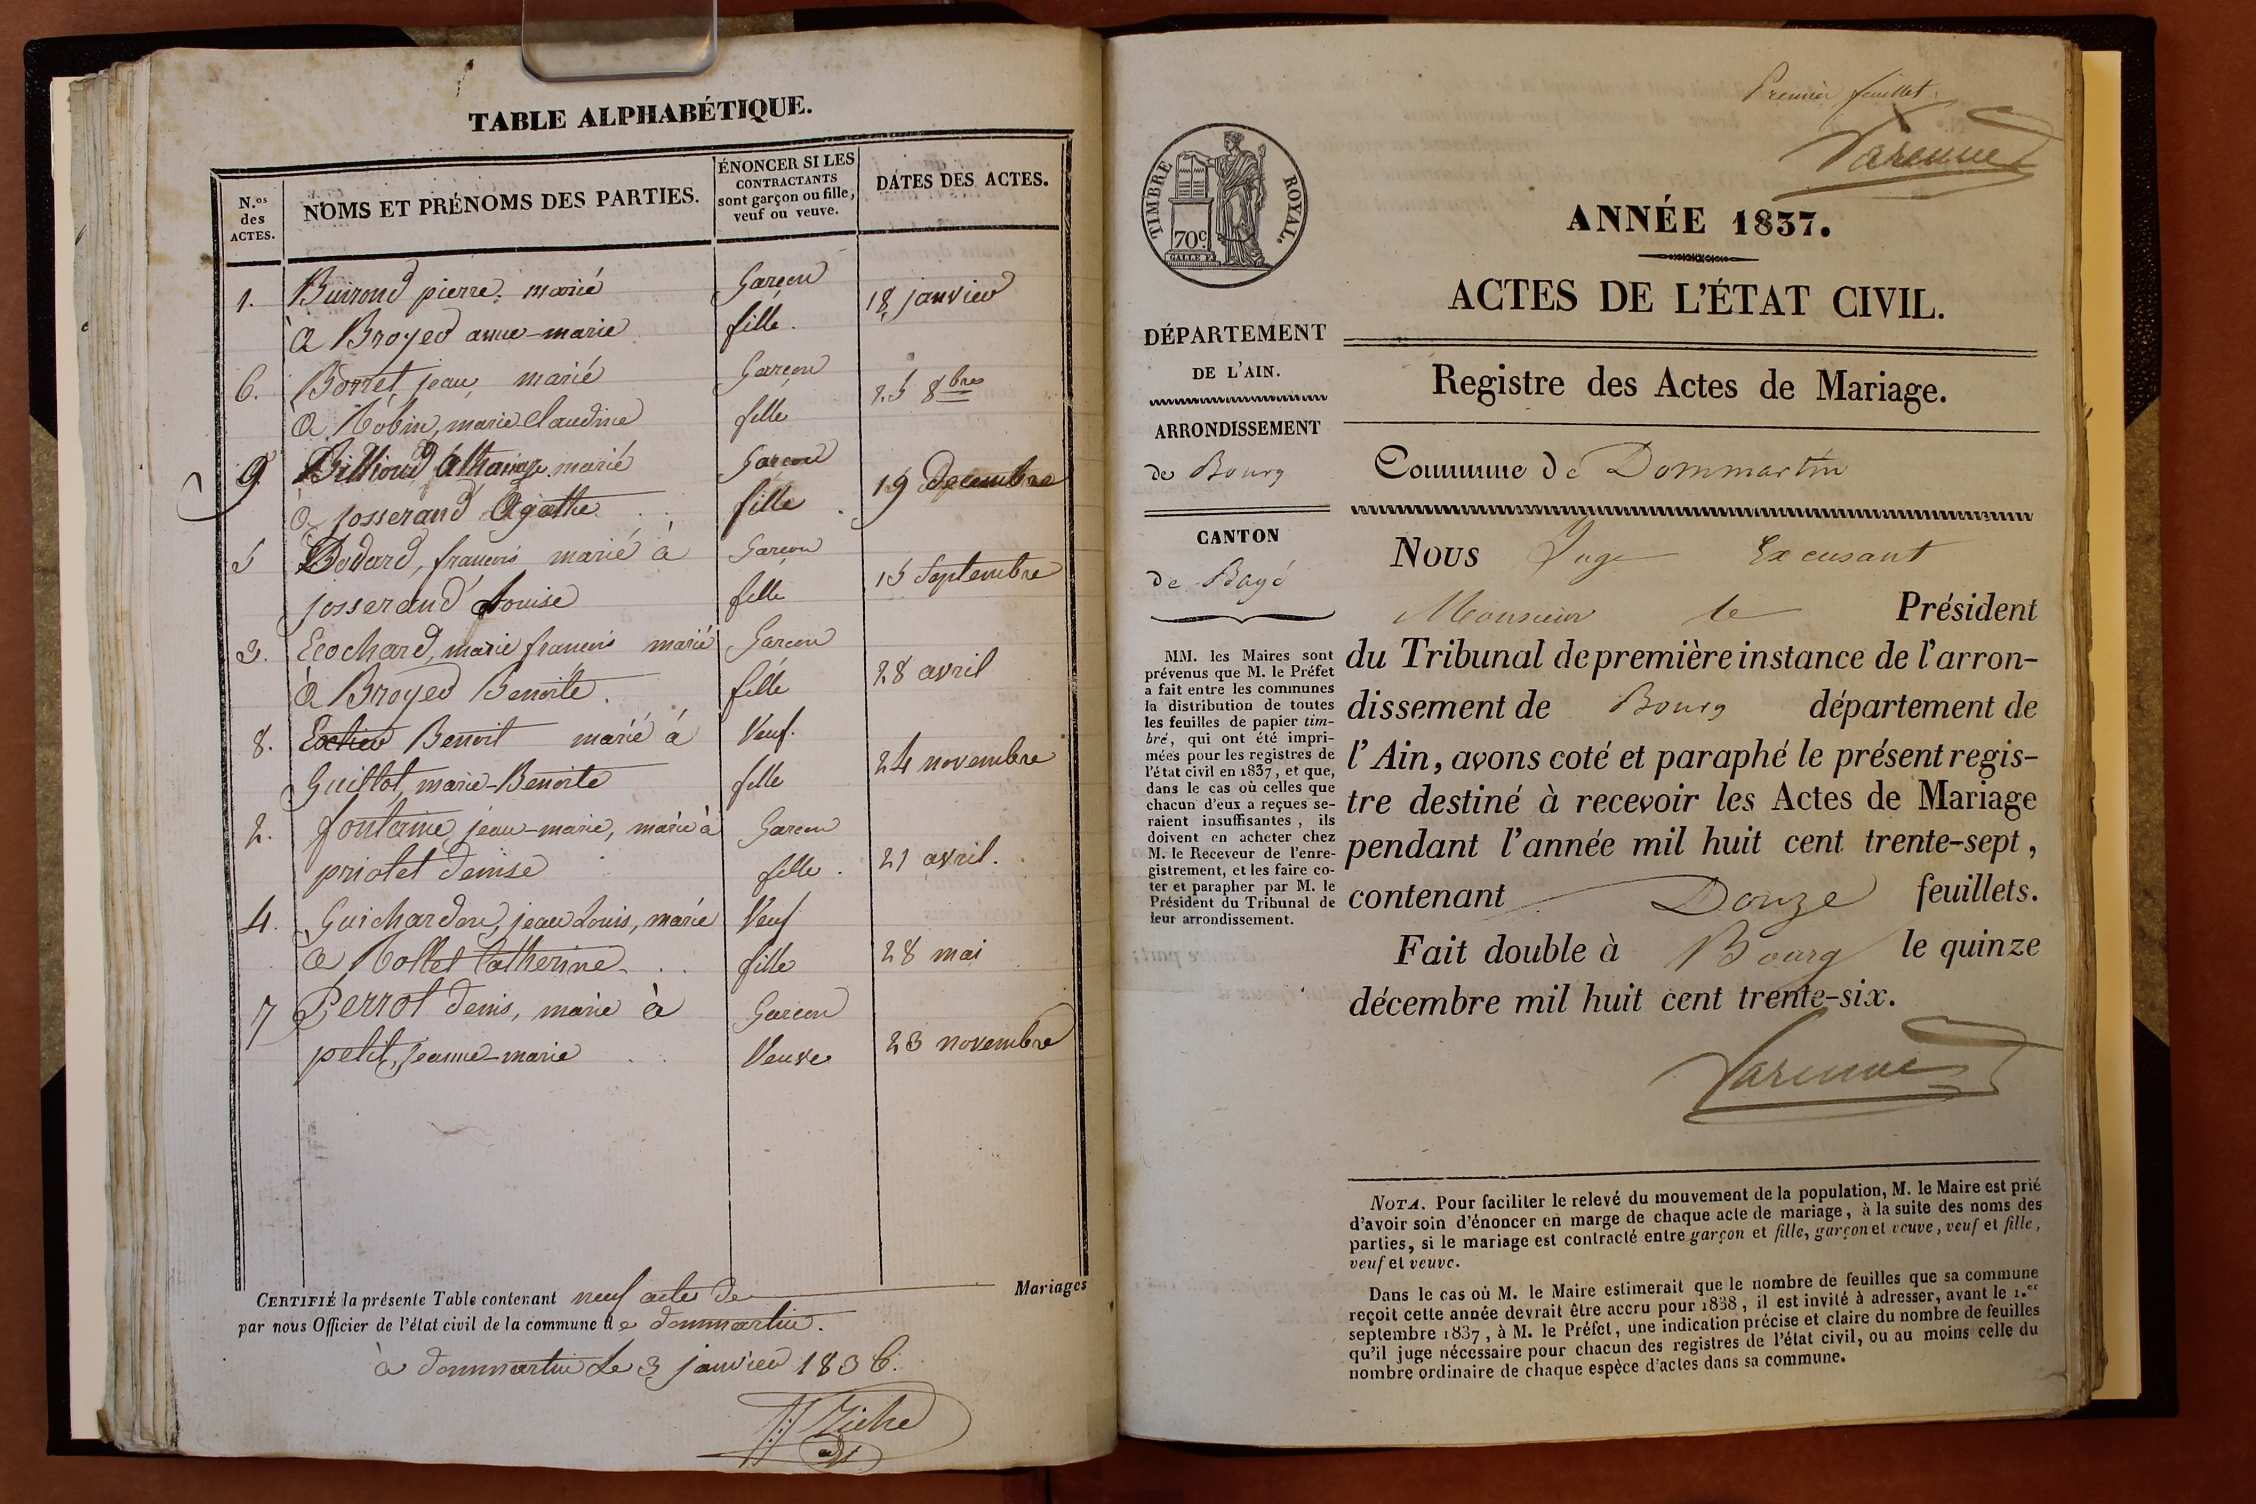 TABLE ALPHABÉTIQUE.
N.os des ACTES.
NOMS ET PRÉNOMS DES PARTIES.
ÉNONCER SI LES
CONTRACTANTS
sont garçon ou fille,
veuf ou veuve.
DATES DES ACTES.
1. Buirond pierre, marié Garçon
à Broyer anne-marie fille. 18 janvier
6. Borret, jean, marié Garçon
à Robin, marie Claudine fille 25 8bre
9 Billioud Athanaze marié Garçon
à josserand Agathe fille. 19 Decembre
5 Bodard, francois marié à Garçon
josserand Louise fille 15 Septembre
3. Ecochard, marie francois marié Garcon
à Broyer Benoite. fille 28 avril
8. Benoit marié à Veuf.
Guillot, marie-Benoite fille 24 novembre
2. fontaine, jean-marie, marié à Garcon
priolet denise fille. 21 avril.
4. Guichardon, jean Louis, marié Veuf
à Rollet Catherine. fille 28 mai
7 Perrot denis, marié à Garcon
petit, jeanne-marie Veuve 23 novembre
CERTIFIÉ la présente Table contenant neuf actes de Mariages
par nous Officier de l'état civil de la commune de dommartin.
à dommartin Le 3 janvier 1836.
Premier feuillet.
Varenne
TIMBRE ROYAL.
70c
ANNÉE 1837.
ACTES DE L'ÉTAT CIVIL.
DÉPARTEMENT
DE L'AIN.
ARRONDISSEMENT
de Bourg
CANTON
de Bagé
MM. les Maires sont
prévenus que M. le Préfet
a fait entre les communes
la distribution de toutes
les feuilles de papier tim-
bré, qui ont été impri-
mées pour les registres de
l'état civil en 1837, et que,
dans le cas où celles que
chacun d'eux a reçues se-
raient insuffisantes, ils
doivent en acheter chez
M. le Receveur de l'enre-
gistrement, et les faire co-
ter et parapher par M. le
Président du Tribunal de
leur arrondissement.
Registre des Actes de Mariage.
Commune de Dommartin
Nous Juge Excusant
Monsieur le Président
du Tribunal de première instance de l'arron-
dissement de Bourg département de
l'Ain, avons coté et paraphé le présent regis-
tre destiné à recevoir les Actes de Mariage
pendant l'année mil huit cent trente-sept,
contenant Douze feuillets.
Fait double à Bourg le quinze
décembre mil huit cent trente-six.
Varenne
NOTA. Pour faciliter le relevé du mouvement de la population, M. le Maire est prié
d'avoir soin d'énoncer en marge de chaque acte de mariage, à la suite des noms des
parties, si le mariage est contracté entre garçon et fille, garçon et veuve, veuf et fille,
veuf et veuve.
Dans le cas où M. le Maire estimerait que le nombre de feuilles que sa commune
reçoit cette année devrait être accru pour 1838, il est invité à adresser, avant le 1.er
septembre 1837, à M. le Préfet, une indication précise et claire du nombre de feuilles
qu'il juge nécessaire pour chacun des registres de l'état civil, ou au moins celle du
nombre ordinaire de chaque espèce d'actes dans sa commune.